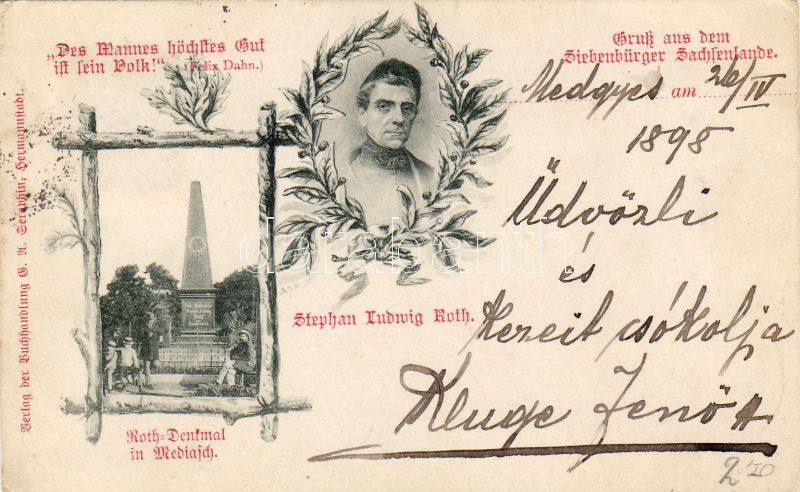 „Des Mannes höchstes Gut
ist sein Volk!“ (Felix Dahn.)
Gruß aus dem
Siebenbürger Sachsenlande.
Medgyes am 26/IV
1898
Üdvözli
és
kezeit csókolja
Kluge Jenő
Stephan Ludwig Roth.
Roth-Denkmal
in Mediasch.
Verlag der Buchhandlung G. A. Seraphin, Hermannstadt.
darabanth